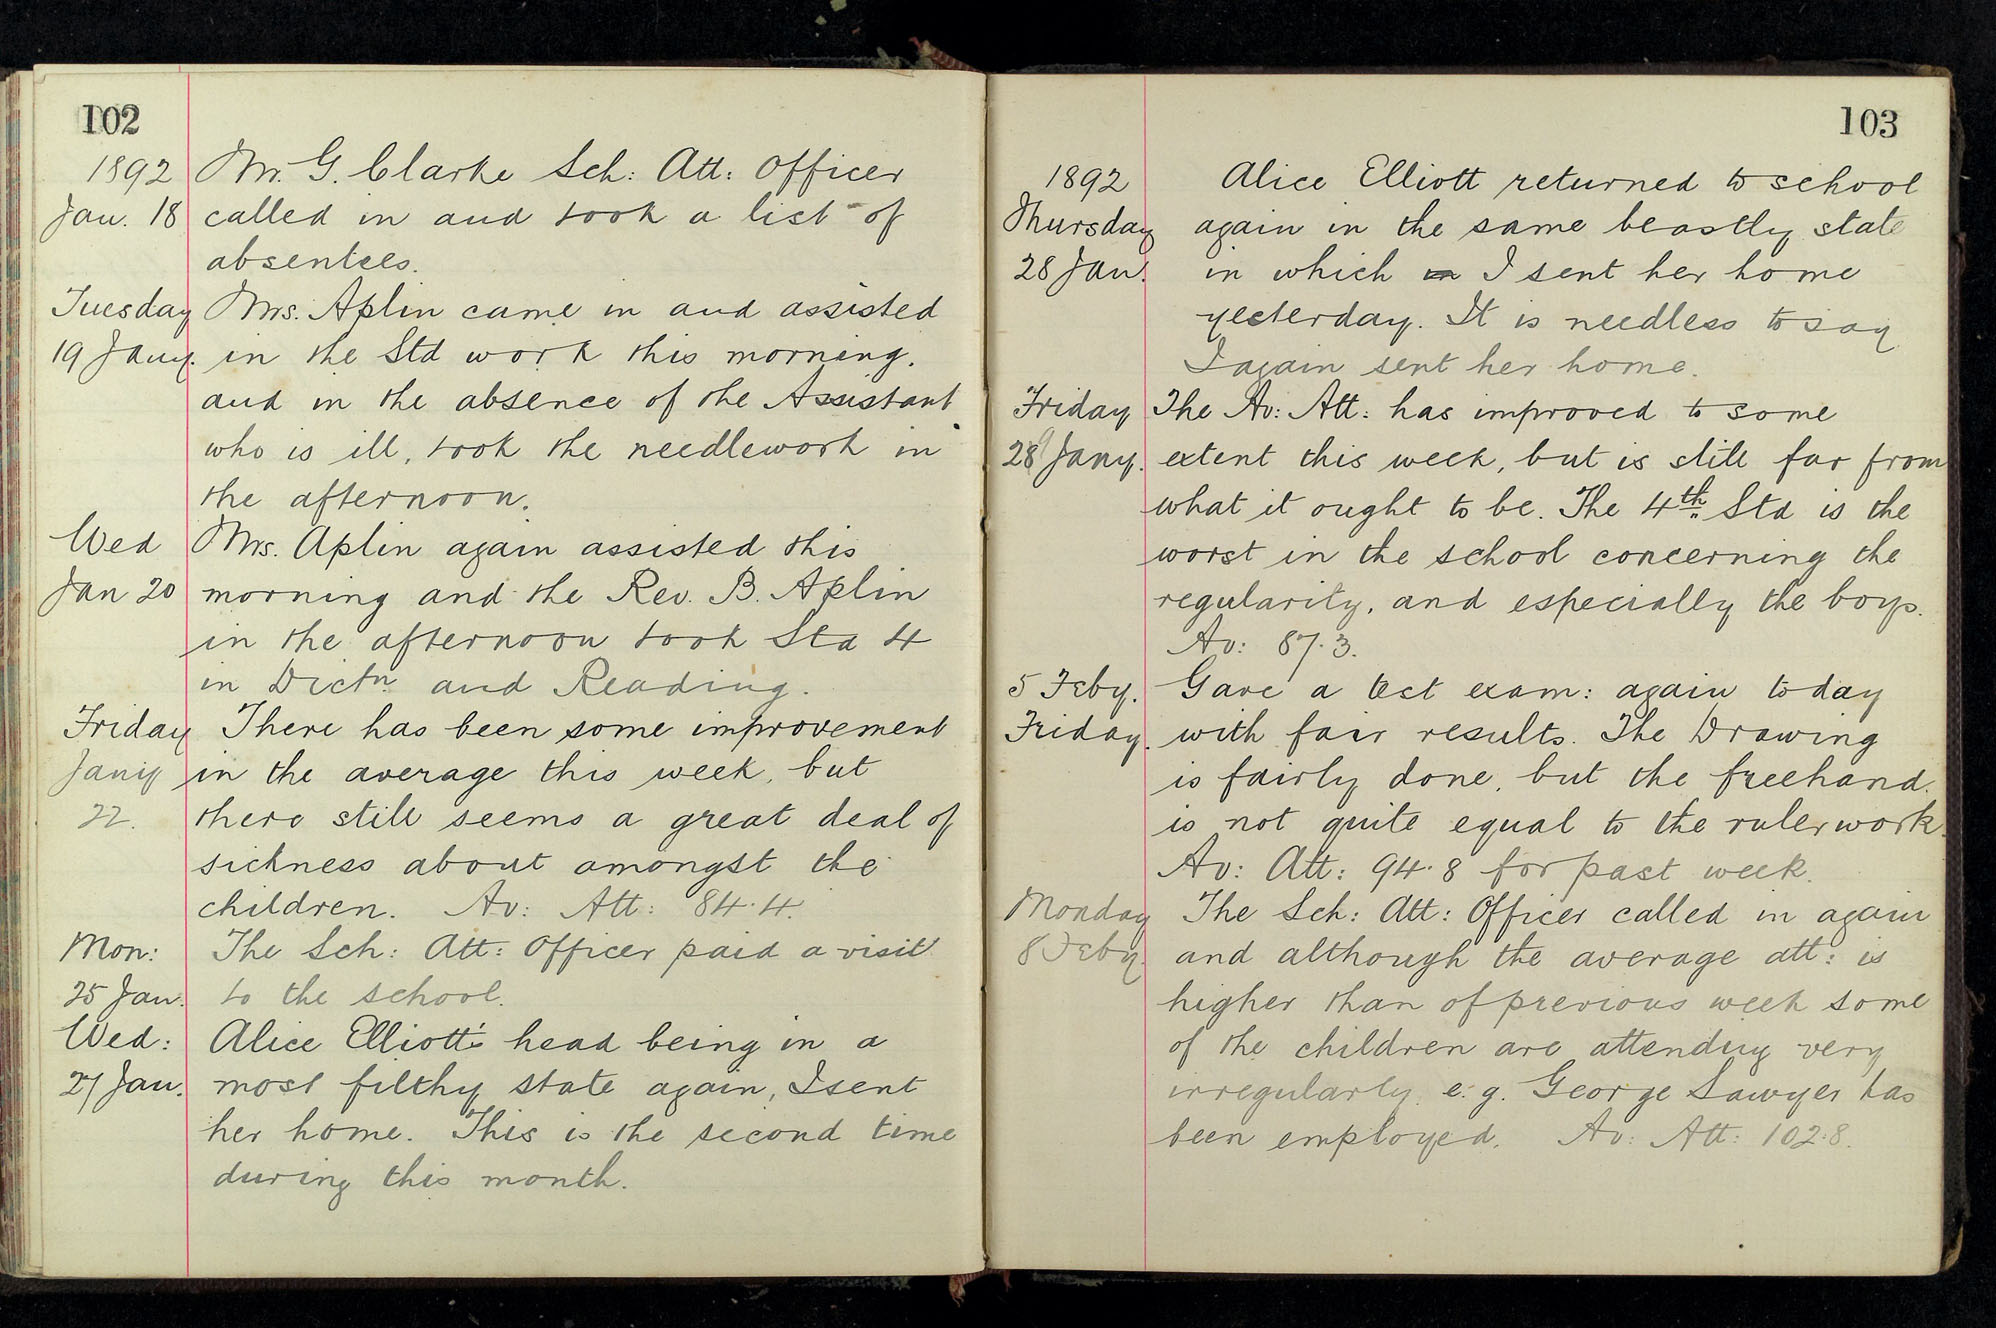 102
1892 Mr. G. Clarke Sch: Att: Officer
Jan. 18 called in and took a list of
absentees.
Tuesday Mrs. Aplin came in and assisted
19 Jany. in the Std work this morning.
and in the absence of the Assistant
who is ill, took the needlework in
the afternoon.
Wed Mrs. Aplin again assisted this
Jan 20 morning and the Rev. B. Aplin
in the afternoon took Std 4
in Dictn and Reading.
Friday There has been some improvement
Jany in the average this week, but
22. there still seems a great deal of
sickness about amongst the
children. Av: Att: 84.4.
Mon: The Sch: Att: Officer paid a visit
25 Jan. to the school.
Wed: Alice Elliott's head being in a
27 Jan. most filthy state again, I sent
her home. This is the second time
during this month.
103
1892 Alice Elliott returned to school
Thursday again in the same beastly state
28 Jan. in which I sent her home
yesterday. It is needless to say
I again sent her home.
Friday The Av: Att: has improved to some
29 Jany. extent this week, but is still far from
what it ought to be. The 4th Std is the
worst in the school concerning the
regularity, and especially the boys.
Av: 87.3.
5 Feby. Gave a test exam: again today
Friday. with fair results. The Drawing
is fairly done, but the freehand
is not quite equal to the ruler work.
Av: Att: 94.8 for past week.
Monday The Sch: Att: Officer called in again
8 Feby. and although the average att: is
higher than of previous week some
of the children are attending very
irregularly e.g. George Sawyer has
been employed. Av: Att: 102.8.